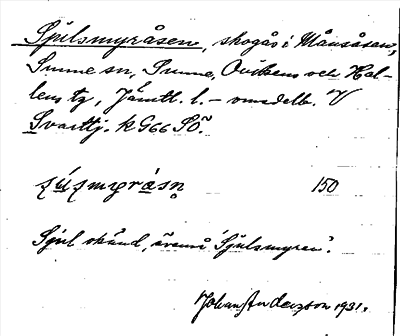 Spilsmyråsen, skogås i Månsåsen,
Sunne sn, Sunne, Ovikens och Hal-
lens tg, Jämtl. l. – omedelb. V
Svarttj. k G66 SÖ.
150
Spil okänd, även i Spilsmyren.
Johan Anderzson 1931.